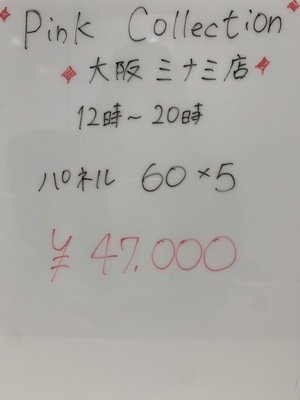 Pink Collection
大阪ミナミ店
12時~20時
パネル 60×5
¥47.000